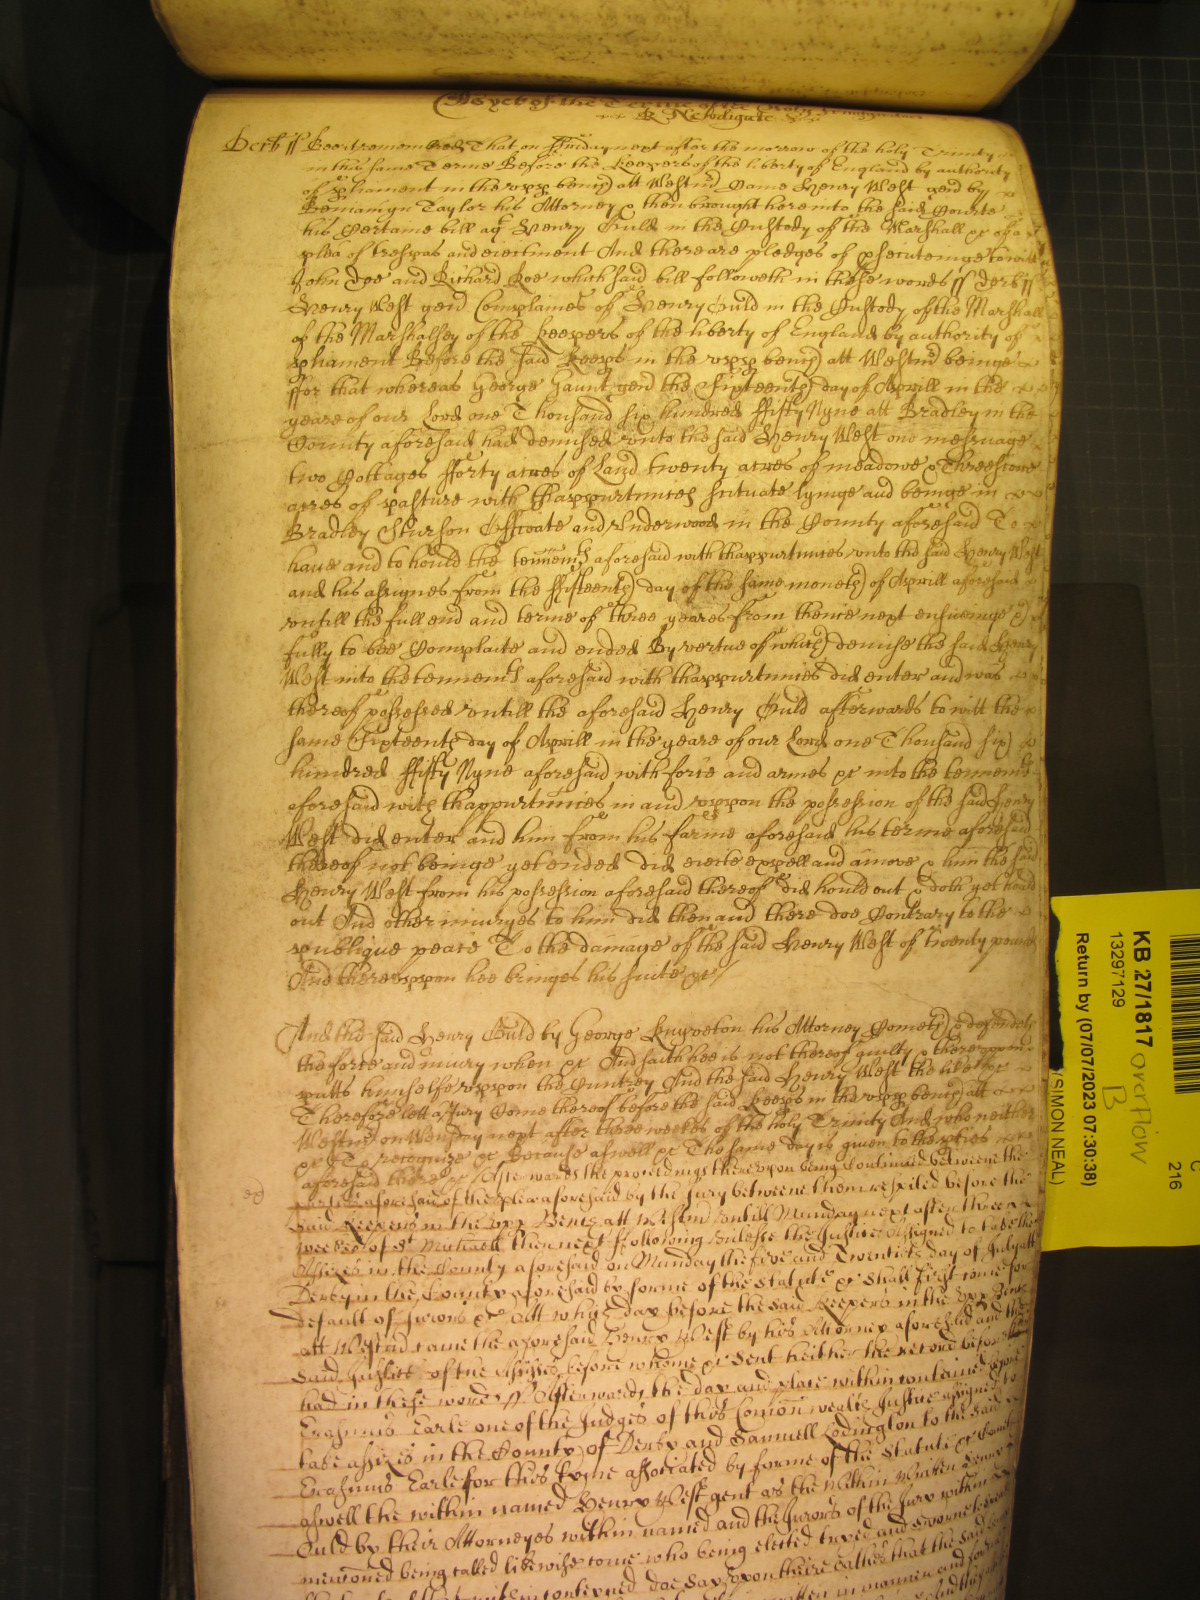 As yet of the Terme of the Holy Trinity
R Newdigate
Derb ss Bee it remembred That on ffriday next after the morrow of the holy Trinity
in this same Terme Before the Keepers of the liberty of England by authority
of pliament in the upp bench att Westm̄ Came Henry West gen̄ by
Beniamyn Taylor his Attorney & then brought here into the said Courte
his Certaine bill ag̃ Henry Ould in the Custody of the Marshall &c of a
plea of trespas and eiectment And there are pledges of psecuteinge to witt
John Doe and Richard Roe which said bill followeth in these words ss Derb ss
Henry West gen̄ Complaines of Henry Ould in the Custody of the Marshall
of the Marshalsey of the Keepers of the liberty of England by authority of
pliament Before the said Keeps in the upp bench att Westm̄ beinge
ffor that whereas George Gaunt gen̄ the Sixteenth day of Aprill in the
yeare of our Lord one Thousand six hundred ffifty Nyne att Bradley in the
County aforesaid had demised unto the said Henry West one messuage
two Cottages fforty acres of Land twenty acres of meadowe & Threescore
acres of pasture with thappurtences scituate lyinge and beinge in
Bradley Sturson Offcoate and Underwood in the County aforesaid To
haue and to hould the tennemts aforesaid with thappurtences unto the said Henry West
and his assignes from the ffifteenth day of the same moneth of Aprill aforesaid
untill the full end and terme of three yeares from thence next ensueinge &
fully to bee Compleate and ended By vertue of which demise the said Henry
West into the tennemts aforesaid with thappurtences did enter and was
thereof possessed untill the aforesaid Henry Ould afterwards to witt the
same Sixteenth day of Aprill in the yeare of our Lord one Thousand six
hundred ffifty Nyne aforesaid with force and armes &c into the tennemts
aforesaid with thappurtences in and uppon the possession of the said Henry
West did enter and him from his farme aforesaid his terme aforesaid
thereof not beinge yet ended did eiecte expell and amove & him the said
Henry West from his possession aforesaid thereof did hould out & doth yet hould
out And other iniuryes to him did then and there doe Contrary to the
publique peace To the damage of the said Henry West of twenty pounds
And thereuppon hee bringes his suite &c
And the said Henry Ould by George Knyveton his Attorney Cometh & defendeth
the force and iniury when &c And saith hee is not thereof guilty & thereuppon
putts himselfe uppon the Cuntrey And the said Henry West the like &c
Therefore lett a Jury Come thereof before the said Keeps in the upp bench att
Westm̄ on Wensday next after three weekes of the holy Trinity And who neither
&c To recognize &c Because aswell &c The same day is given to the pties
aforesaid there &c Afterwards the proceedings thereupon being Continued betweene the
parties aforesaid of the plea aforesaid by the Jury betweene them respited before the
said Keepers in the Upp Bench att Westm̄ untill Munday next after three
weekes of St Michaell then next following unlesse the Justices Assigned to take the
Assizes in the County aforesaid on Munday the five and Twentieth day of July att
Derby in the County aforesaid by forme of the statute &c shall first come for
default of Jurors &c Att which day before the said Keepers in the Upp Bench
att Westm̄ came the aforesaid Henry West by his Attorney aforesaid and the
said Justices of the Assizes before whome &c sent heither the record before them
had in these words ss Afterwards the day and place within contained before
Erasmus Earle one of the Judges of this Com̄on wealth Justice assigned to
take assizes in the County of Derby and Samuell Lodington to the said
Erasmus Earle for this tyme associated by forme of the Statute &c Come
aswell the within named Henry West gent as the within written Henry
Ould by their Attorneyes within named and the Jurors of the Jury within
mentioned being called likewise come who being elected tryed and sworne
contayned doe say upon theire oathes that the said
in manner and
KB 27/1817 overflow
B
13297129
Return by (07/07/2023 07:30:38)
(SIMON NEAL)
216